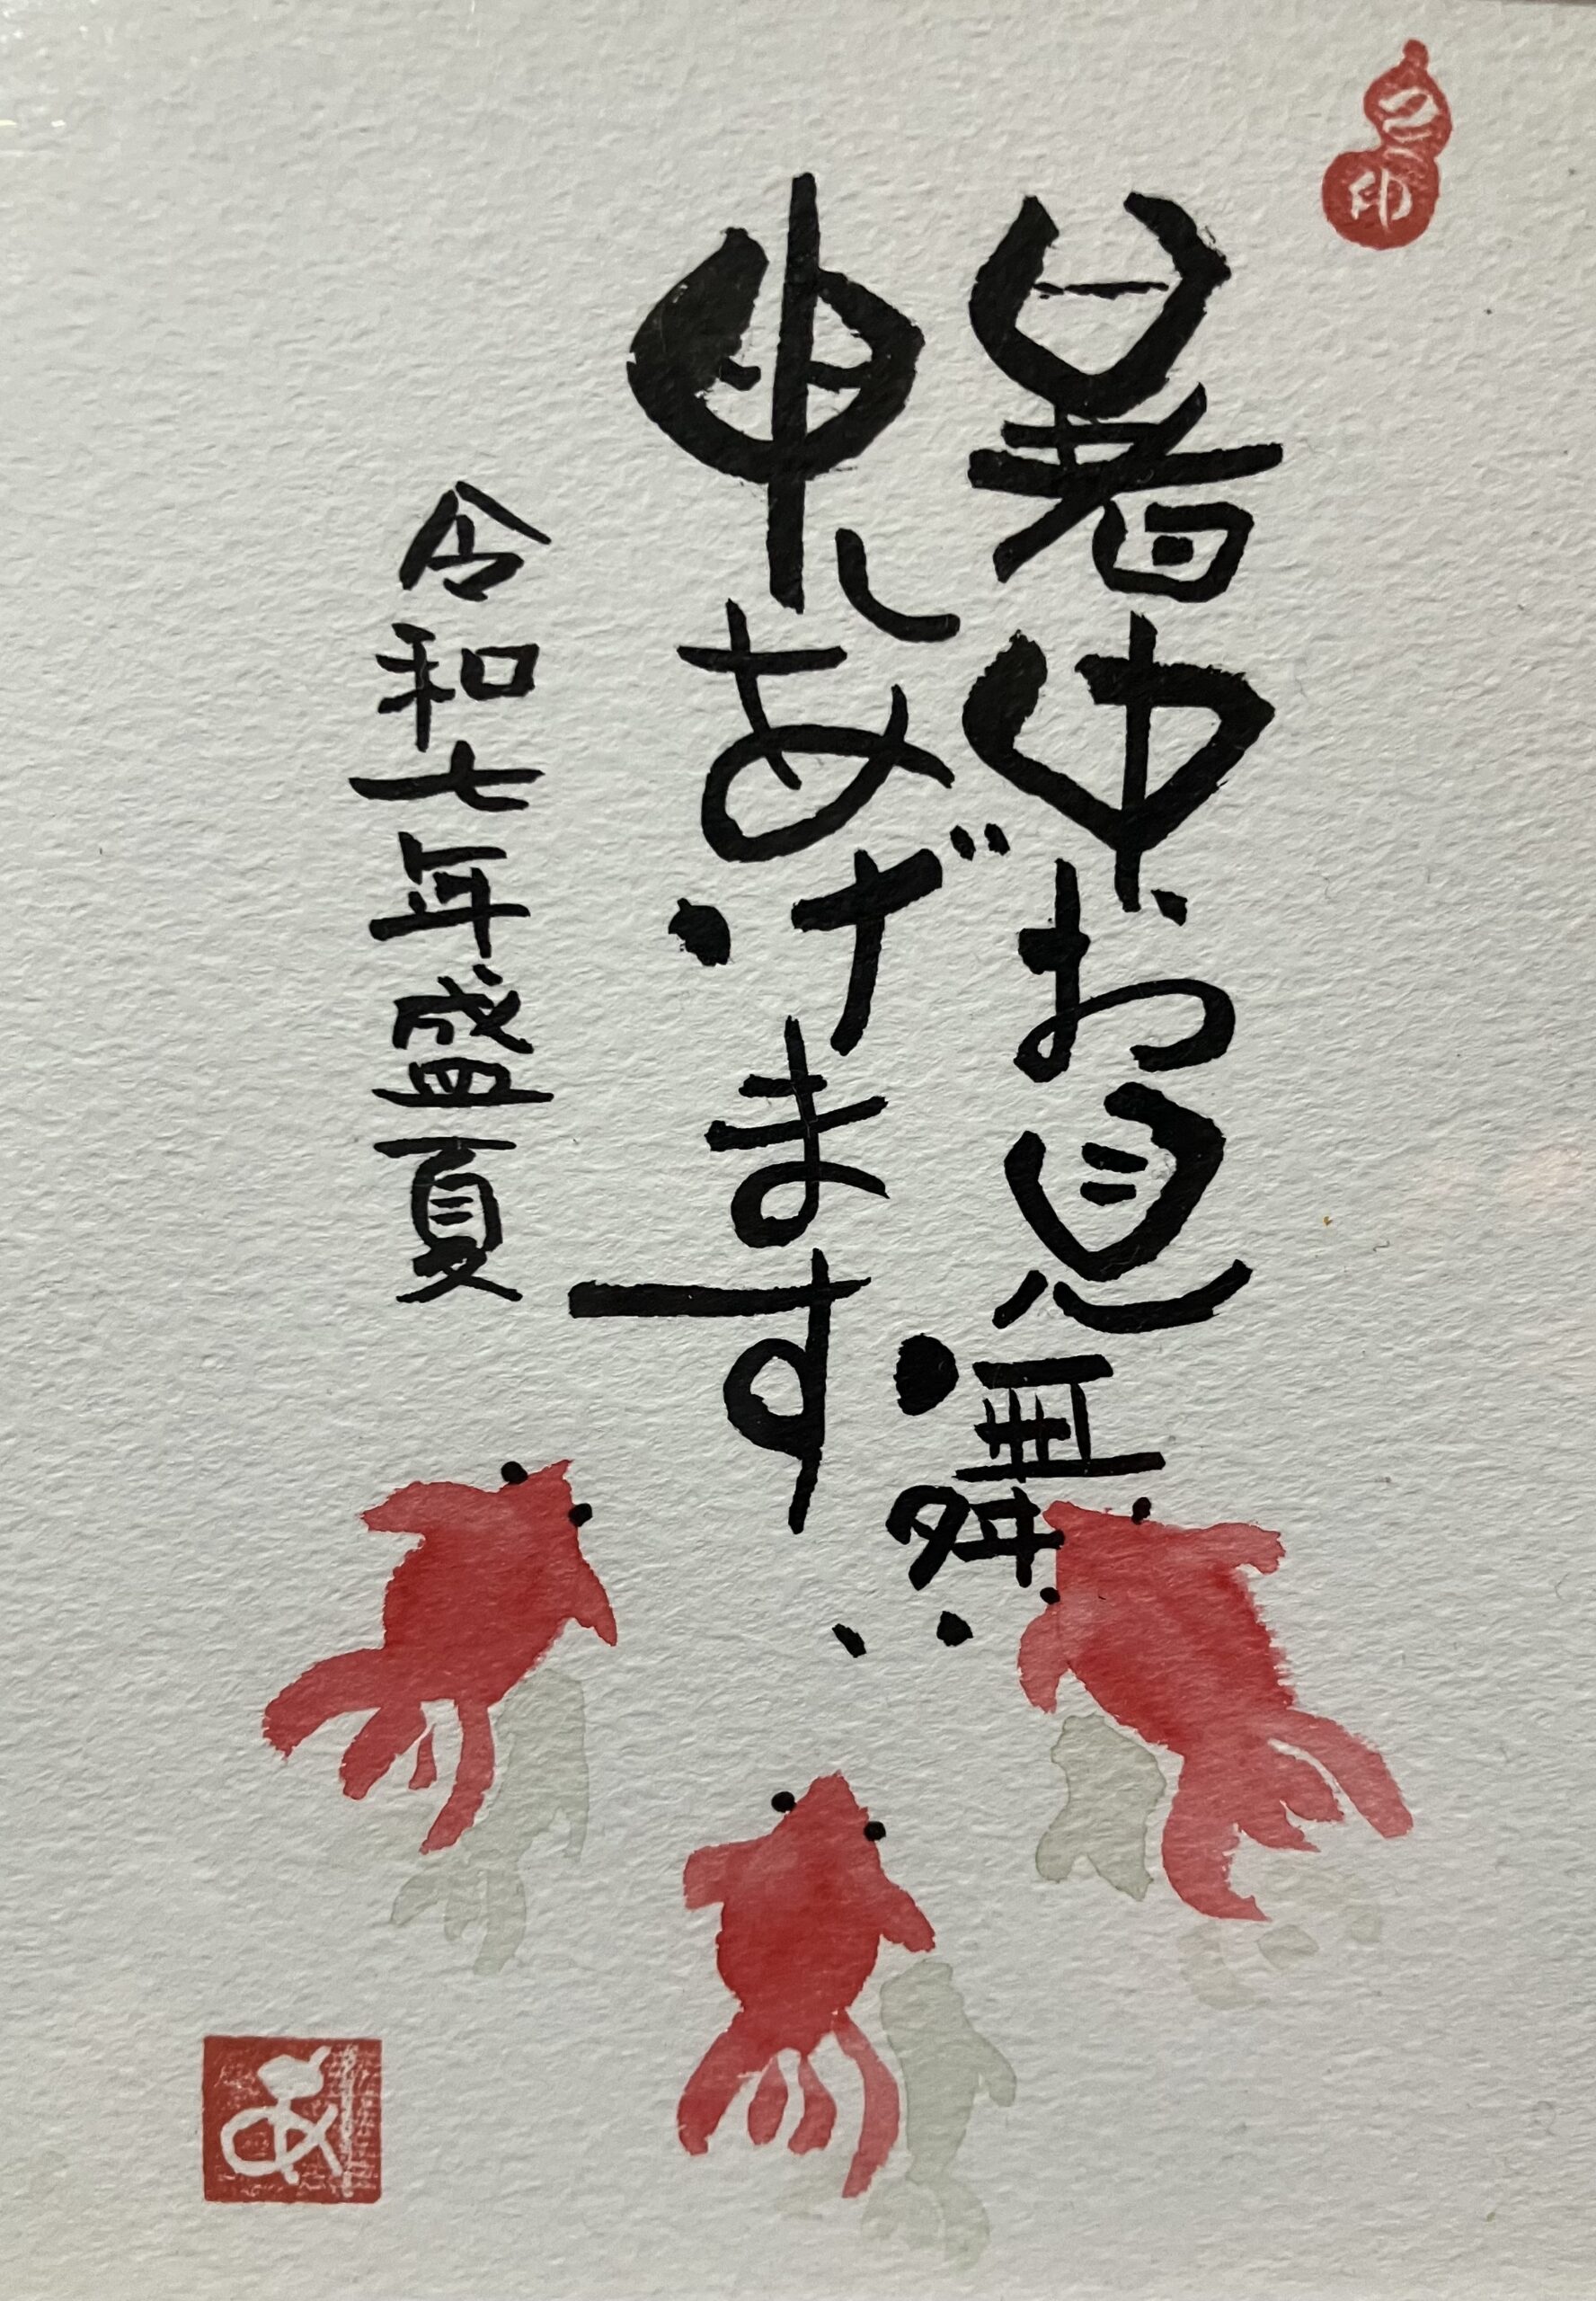 暑中お見舞い
申しあげます
令和七年盛夏